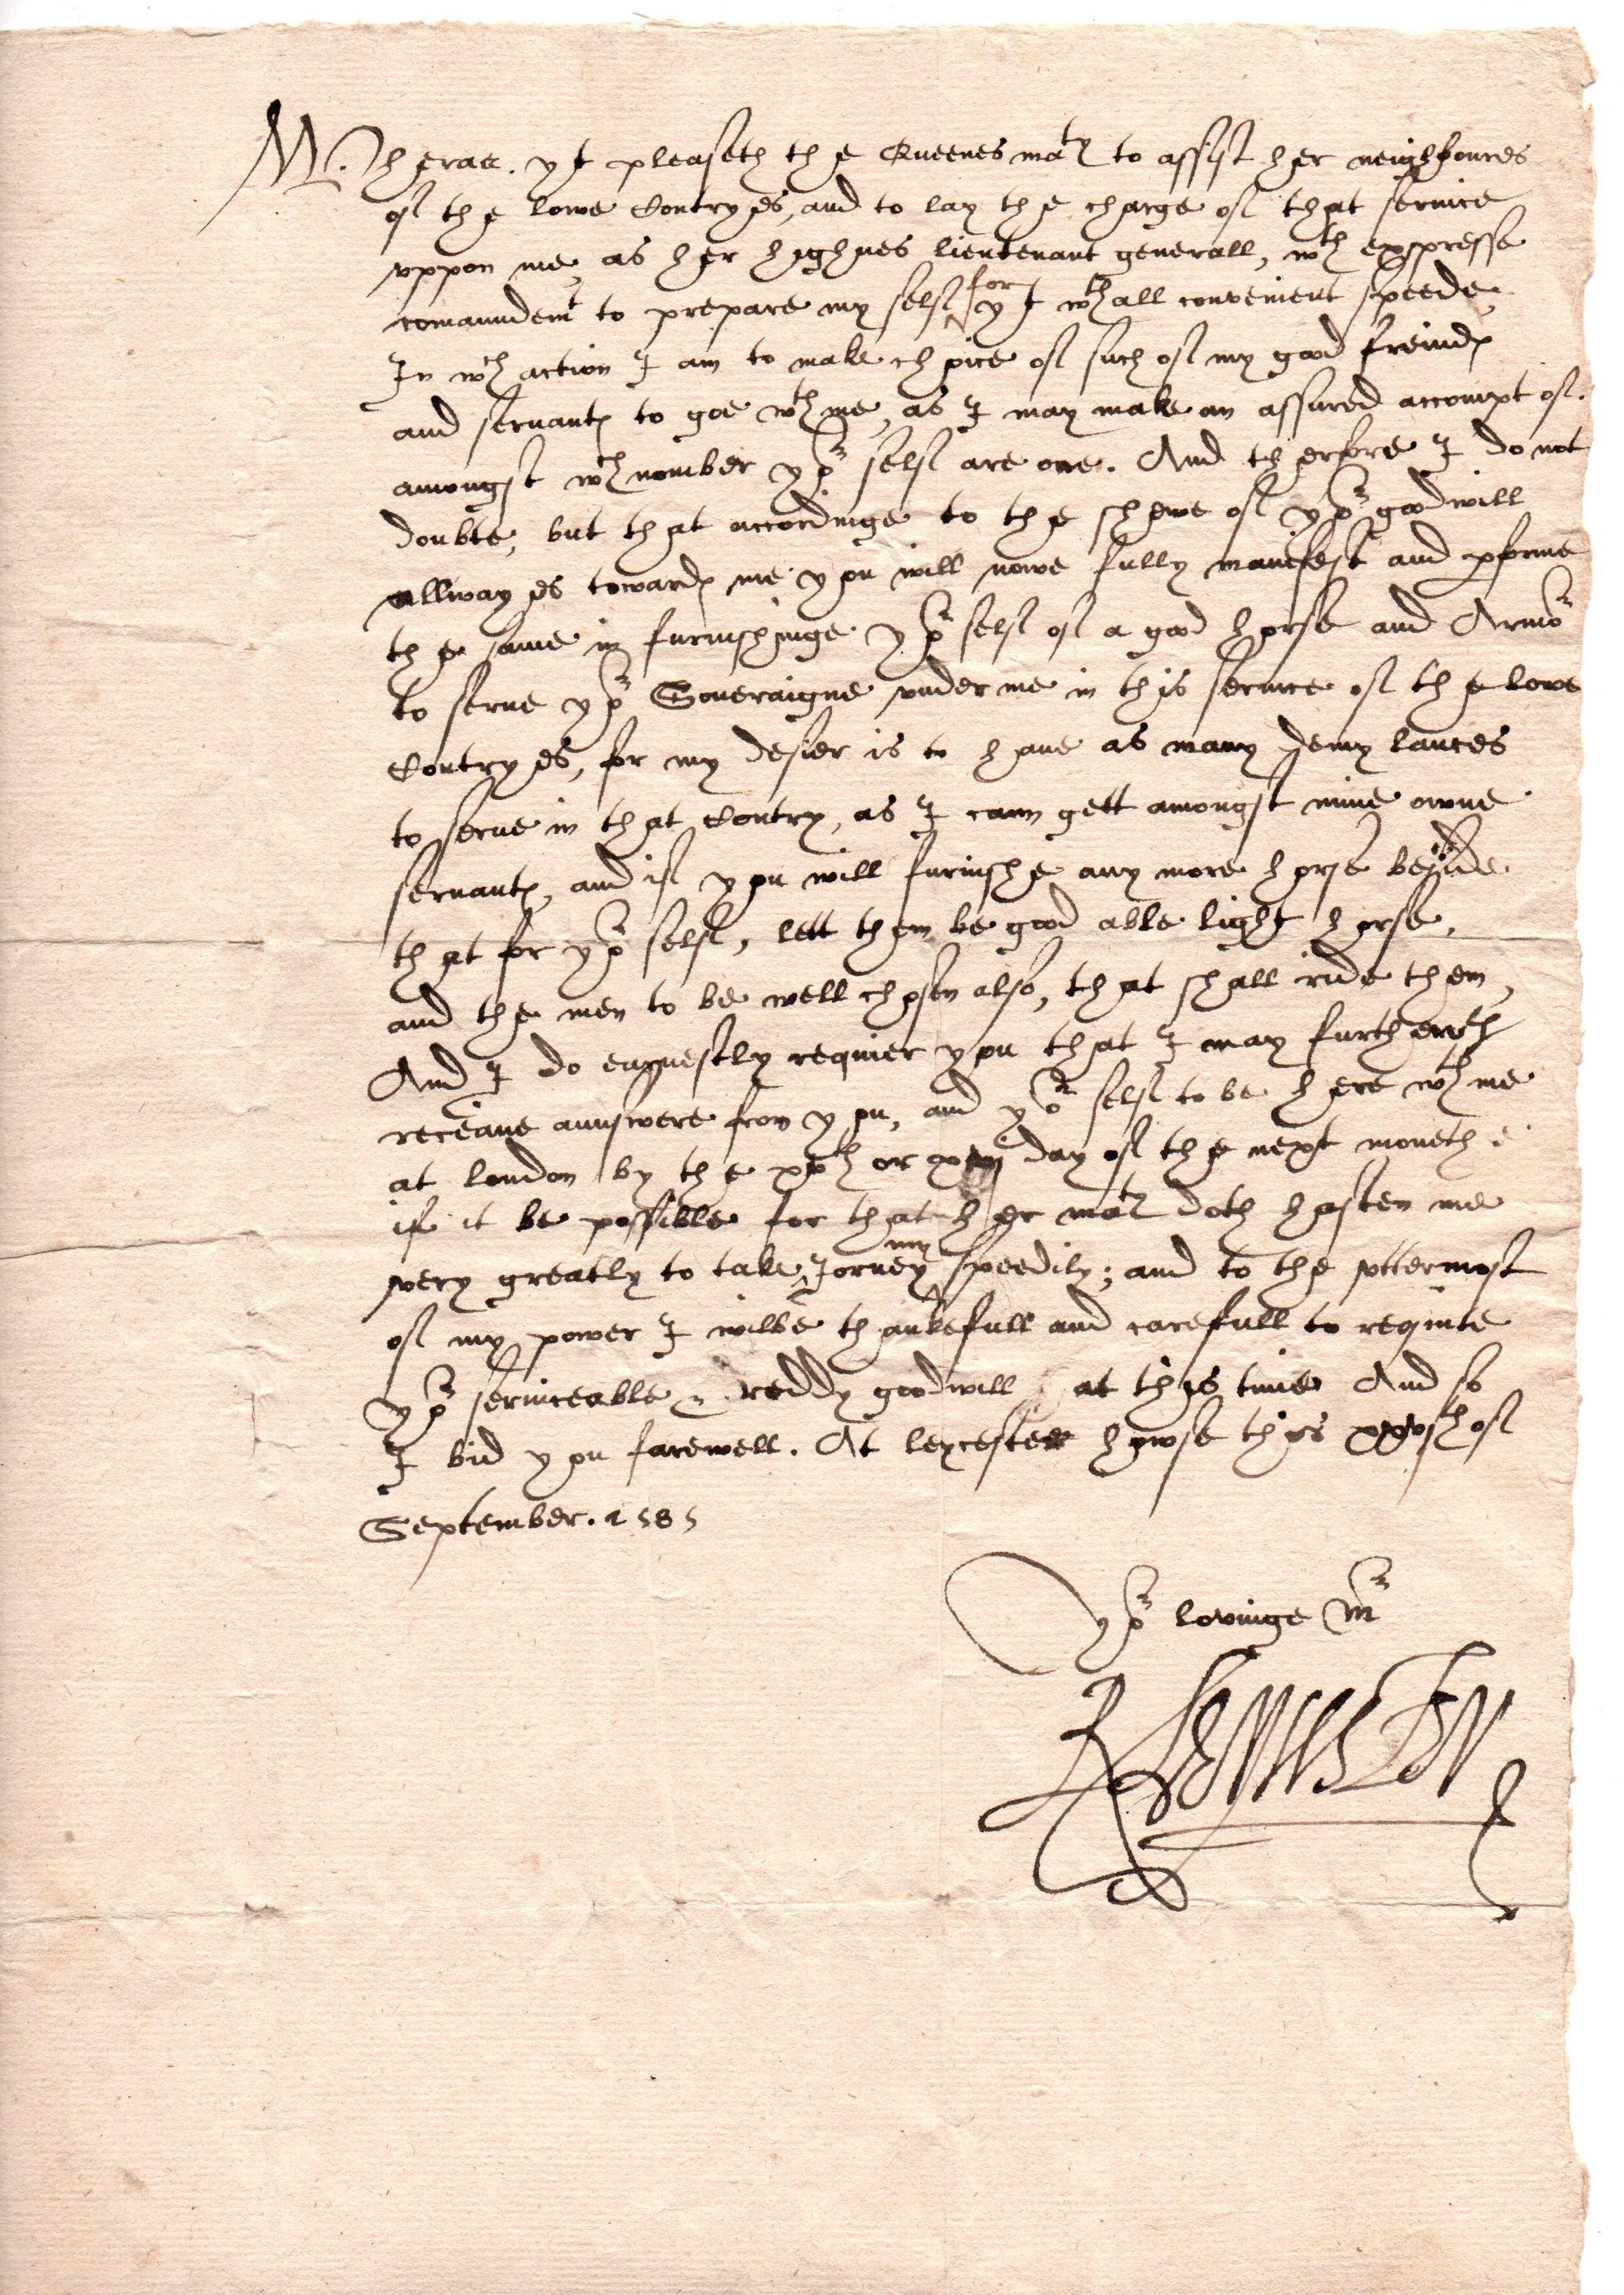 Wheras yt pleaseth the Queenes ma^ty to assist her neighboures
of the lowe Contryes, and to lay the charge of that service
vppon me, as her highnes lieutenant generall, w^th expresse
comaundem^t to prepare my self for yt w^th all convenient speede,
In w^ch action I am to make choice of such of my good freindes
and servantes to goe w^th me, as I may make an assured accompt of.
amongst w^ch nomber yo^r self are one. And therfore I do not
doubte, but that accordinge to the shewe of yo^r goodwill
allwayes towardes me you will nowe fully manifest and pforme
the same in furnishinge yo^r self of a good horse and Armo^r
to serve yo^r Soueraigne vnder me in this service of the lowe
Contryes, for my desier is to haue as many demy lances
to serue in that Contry, as I cann gett amongst mine owne
servantes, and if you will furnishe any more horse beside
that for yo^r self, lett them be good able light horse,
and the men to be well chosen also, that shall ride them,
And I do earnestly requier you that I may furthw^th
receaue aunswere from you, and yo^r self to be here w^th me
at London by the xx^th or day of the next moneth
if it be possible for that her ma^ty doth hasten me
very greatly to take my Jorney speedily; and to the vttermost
of my power I wilbe thankefull and carefull to requite
yo^r serviceable & reddy goodwill at this time And so
I bid you farewell. At leycester howse this of
September. 1585
yo^r lovinge m^r
R Leycester